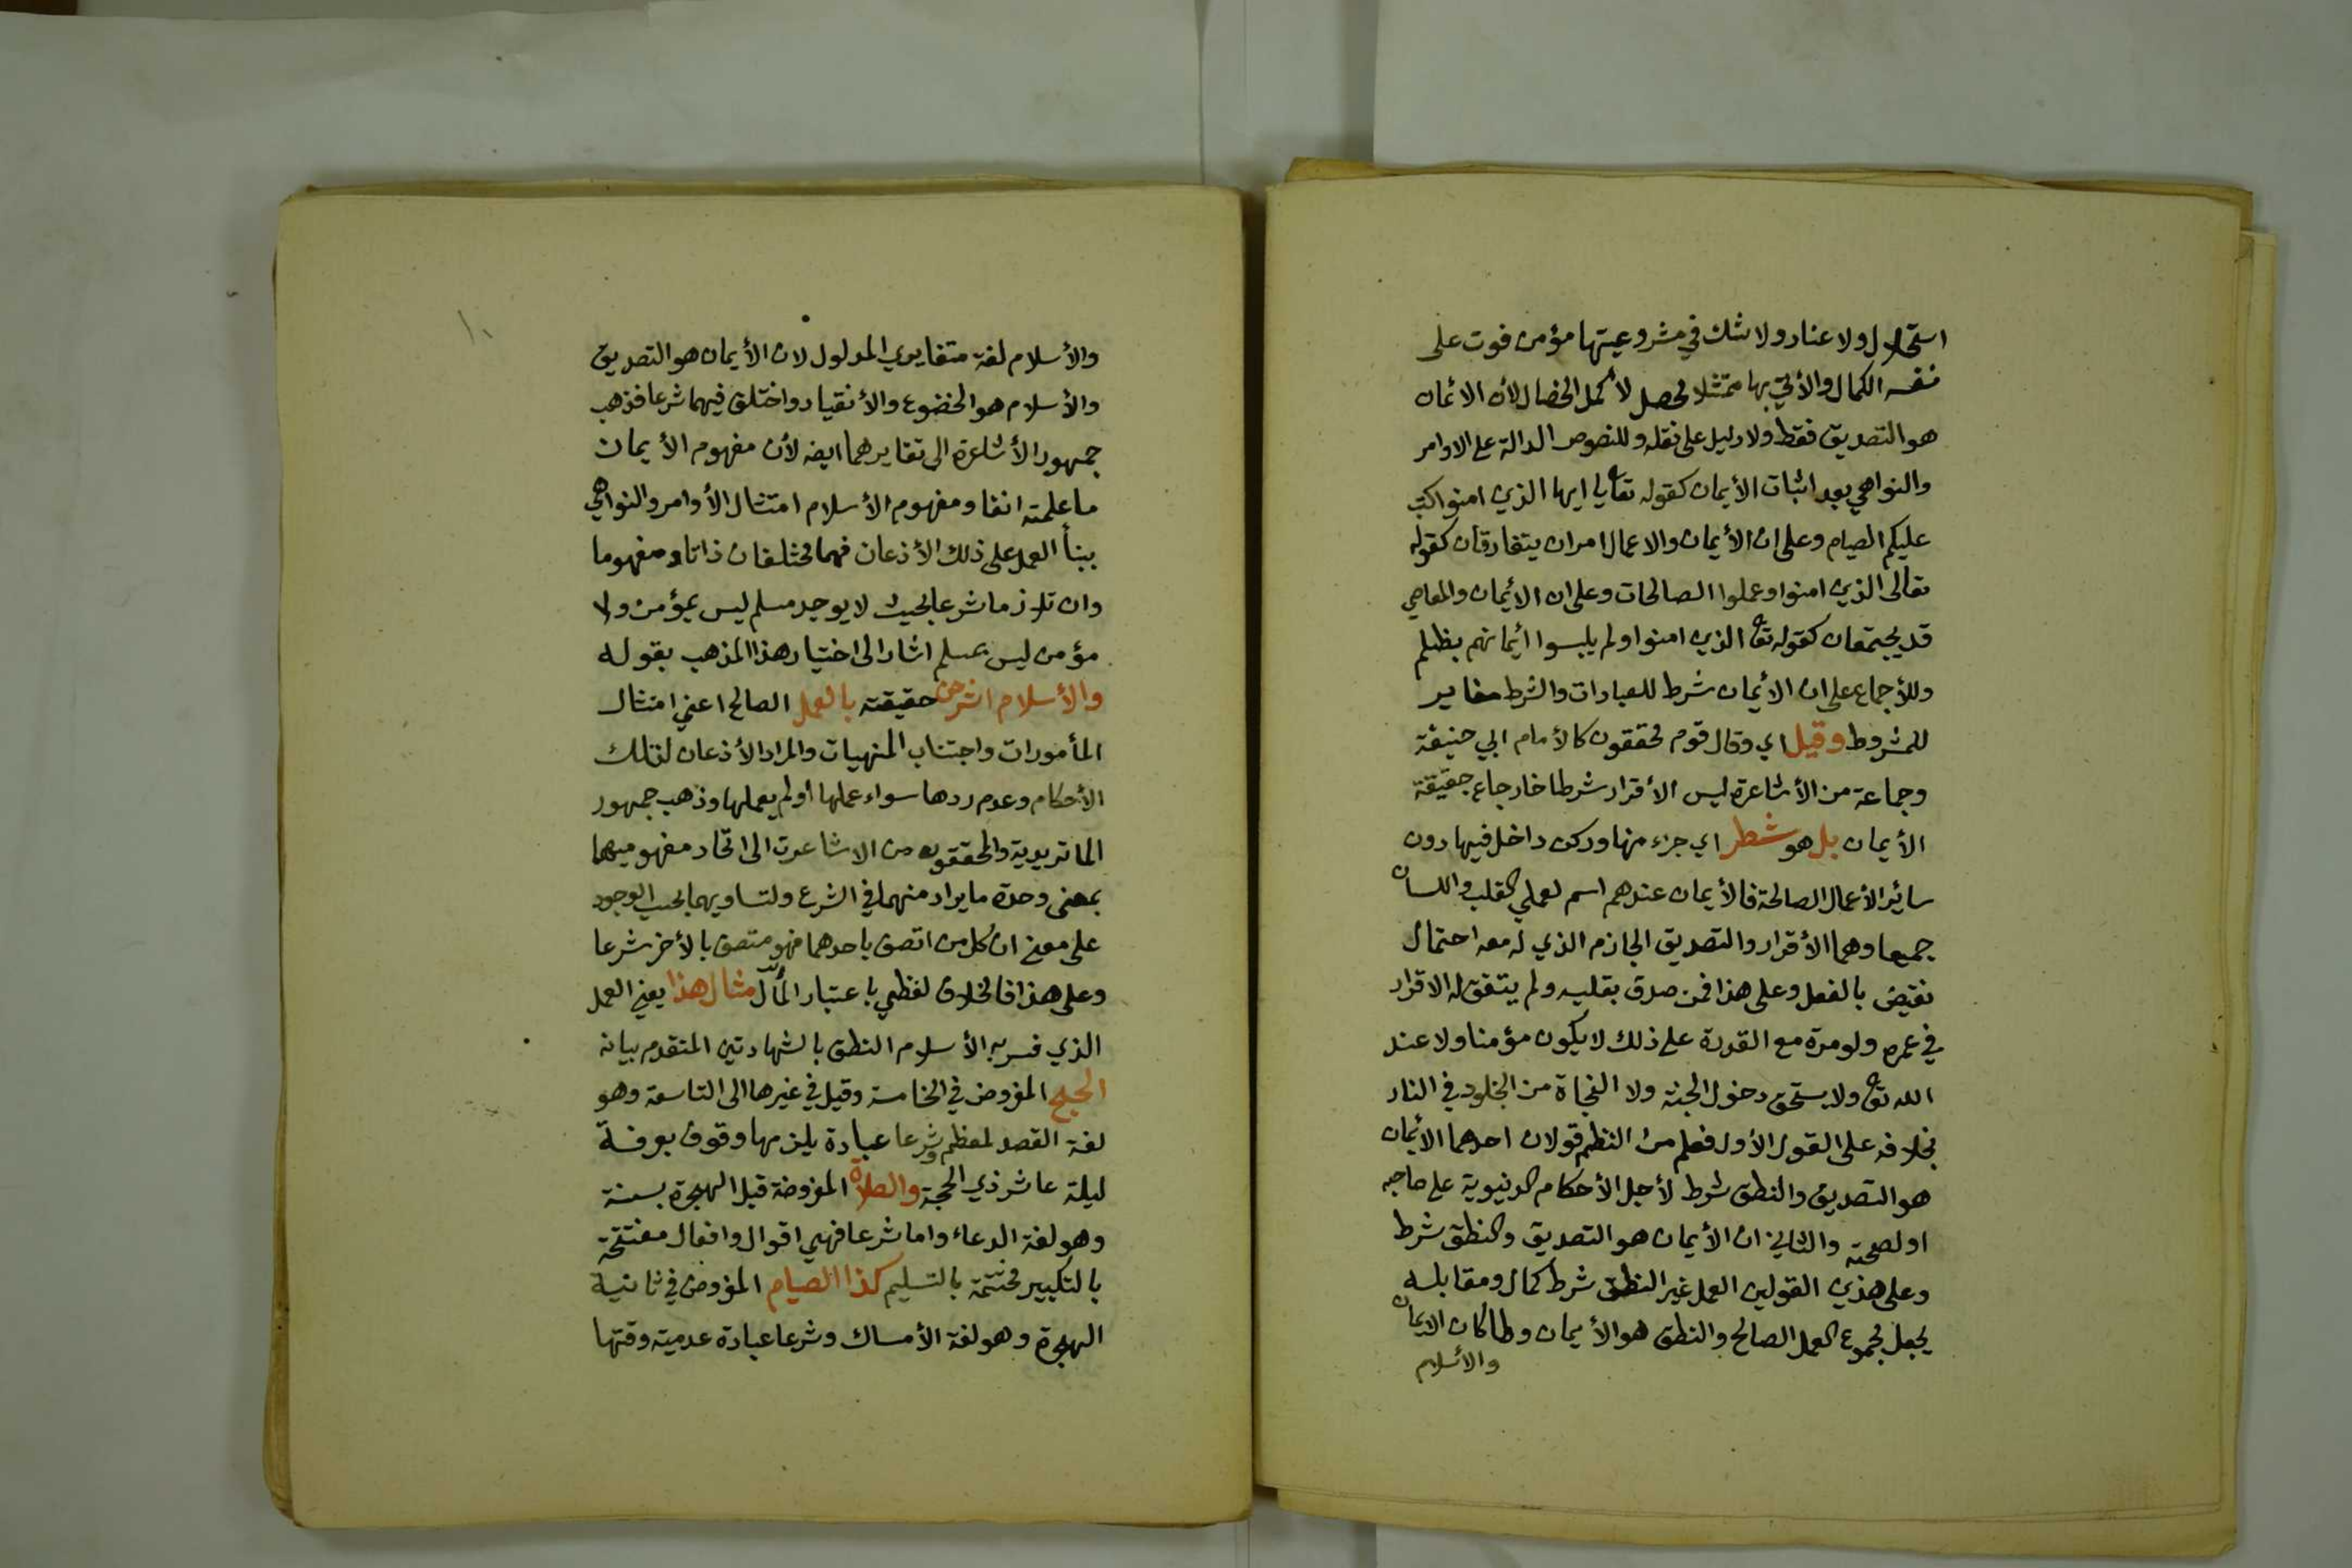 استحلال ولا عناد ولا شك في مشروعيتها مؤمن فوت على
نفسه الكمال والأتي بها ممتثلا محصل لأكمل الخصال لأن الائمان
هو التصديق فقط ولا دليل على نقله وللنصوص الدالة على الاوامر
والنواهي بعد اثبات الأيمان كقوله تعا يا ايها الذين امنوا كتب
عليكم الصيام وعلى ان الأيمان والاعمال امران يتفارقان كقوله
تعالى الذين امنوا وعملوا الصالحات وعلى ان الائيمان والمعاصي
قد يجتمعان كقوله تعا الذين امنوا ولم يلبسوا ائيمانهم بظلم
وللأجماع على ان الأيمان شرط للعبادات والشرط مغاير
للمشروط وقيل اي وقال قوم محققون كالأمام ابي حنيفة
وجماعة من الأشاعرة ليس الأقرار شرطا خارجا عن حقيقة
الأيمان بل هو شطر اي جزء منها وركن داخل فيها دون
سائر الأعمال الصالحة فالأيمان عندهم اسم لعملي القلب واللسان
جميعا وهما الأقرار والتصديق الجازم الذي له معه احتمال
نقيض بالفعل وعلى هذا فمن صدق بقلبه ولم يتفق له الاقرار
في عمره ولو مرة مع القدرة على ذلك لا يكون مؤمنا ولا عند
الله تعا ولا يستحق دخول الجنة ولا النجاة من الخلود في النار
بخلافه على القول الأول فعلم من النظم قولان احدهما الائيمان
هو التصديق والنطق شرط لأجل الأحكام الدنيوية على صاحبه
او لصحته والثاني ان الأيمان هو التصديق والنطق شرط
وعلى هذين القولين العمل غير النطق شرط كمال ومقابله
يجعل مجموع العمل الصالح والنطق هو الأيمان ولما كان الايمان
والأسلام
١٠
والأسلام لغة متغايري المدلول لان الأيمان هو التصديق
والأسلام هو الخضوع والأنقياد واختلف فيهما شرعا فذهب
جمهور الأشاعرة الى تغايرهما ايضه لأن مفهوم الأيمان
ما علمته انفا ومفهوم الأسلام امتثال الأوامر والنواهي
ببنأ العمل على ذلك الأذعان فهما مختلفان ذاتا ومفهوما
وان تلازما شرعا بحيث لا يوجد مسلم ليس بمؤمن ولا
مؤمن ليس بمسلم اشار الى اختيار هذا المذهب بقوله
والأسلام اشرحن حقيقته بالعمل الصالح اعني امتثال
المأمورات واجتناب المنهيات والمراد الأذعان لتلك
الأحكام وعدم ردها سواء عملها او لم يعملها وذهب جمهور
الماتريدية والمحققون من الاشاعرة الى اتحاد مفهوميهما
بمعنى وحدة ما يراد منهما في الشرع ولتساويهما بحسب الوجود
على معنى ان كل من اتصف باحدهما فهو متصف بالأخر شرعا
وعلى هذا فالخلاف لفظي باعتبار المأل مثال هذا يعني العمل
الذي فسر به الأسلام النطق بالشهادتين المتقدم بيانه
الحج المفروض في الخامسة وقيل في غيرها الى التاسعة وهو
لغة القصد لمعظم وشرعا عبادة يلزمها وقوف بعرفة
ليلة عاشر ذي الحجة والصلاة المفروضة قبل الهجرة بسنة
وهو لغة الدعاء واما شرعا فهي اقوال وافعال مفتتحة
بالتكبير مختتمة بالتسليم كذا الصيام المفروض في ثانية
الهجرة وهو لغة الأمساك وشرعا عبادة عدمية وقتها